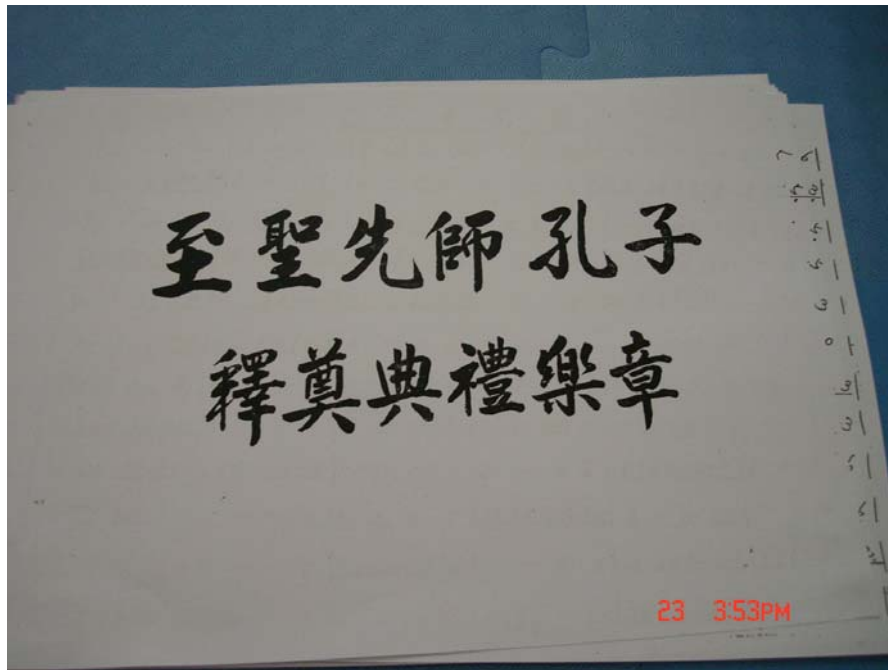 至聖先師孔子
釋奠典禮樂章
23 3:53PM